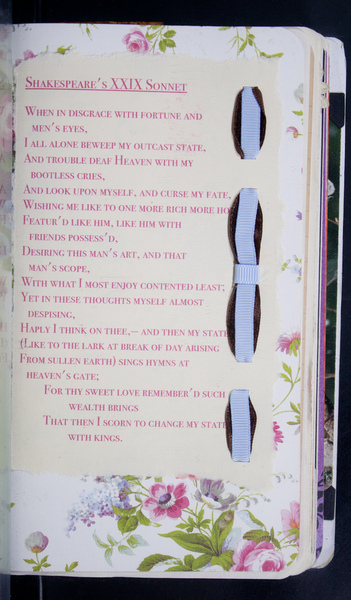 Shakespeare's XXIX Sonnet
When in disgrace with fortune and
men's eyes,
I all alone beweep my outcast state,
And trouble deaf Heaven with my
bootless cries,
And look upon myself, and curse my fate,
Wishing me like to one more rich more ho
Featur'd like him, like him with
friends possess'd,
Desiring this man's art, and that
man's scope,
With what I most enjoy contented least;
Yet in these thoughts myself almost
despising,
Haply I think on thee,— and then my state
(Like to the lark at break of day arising
From sullen earth) sings hymns at
heaven's gate;
For thy sweet love remember'd such
wealth brings
That then I scorn to change my state
with kings.